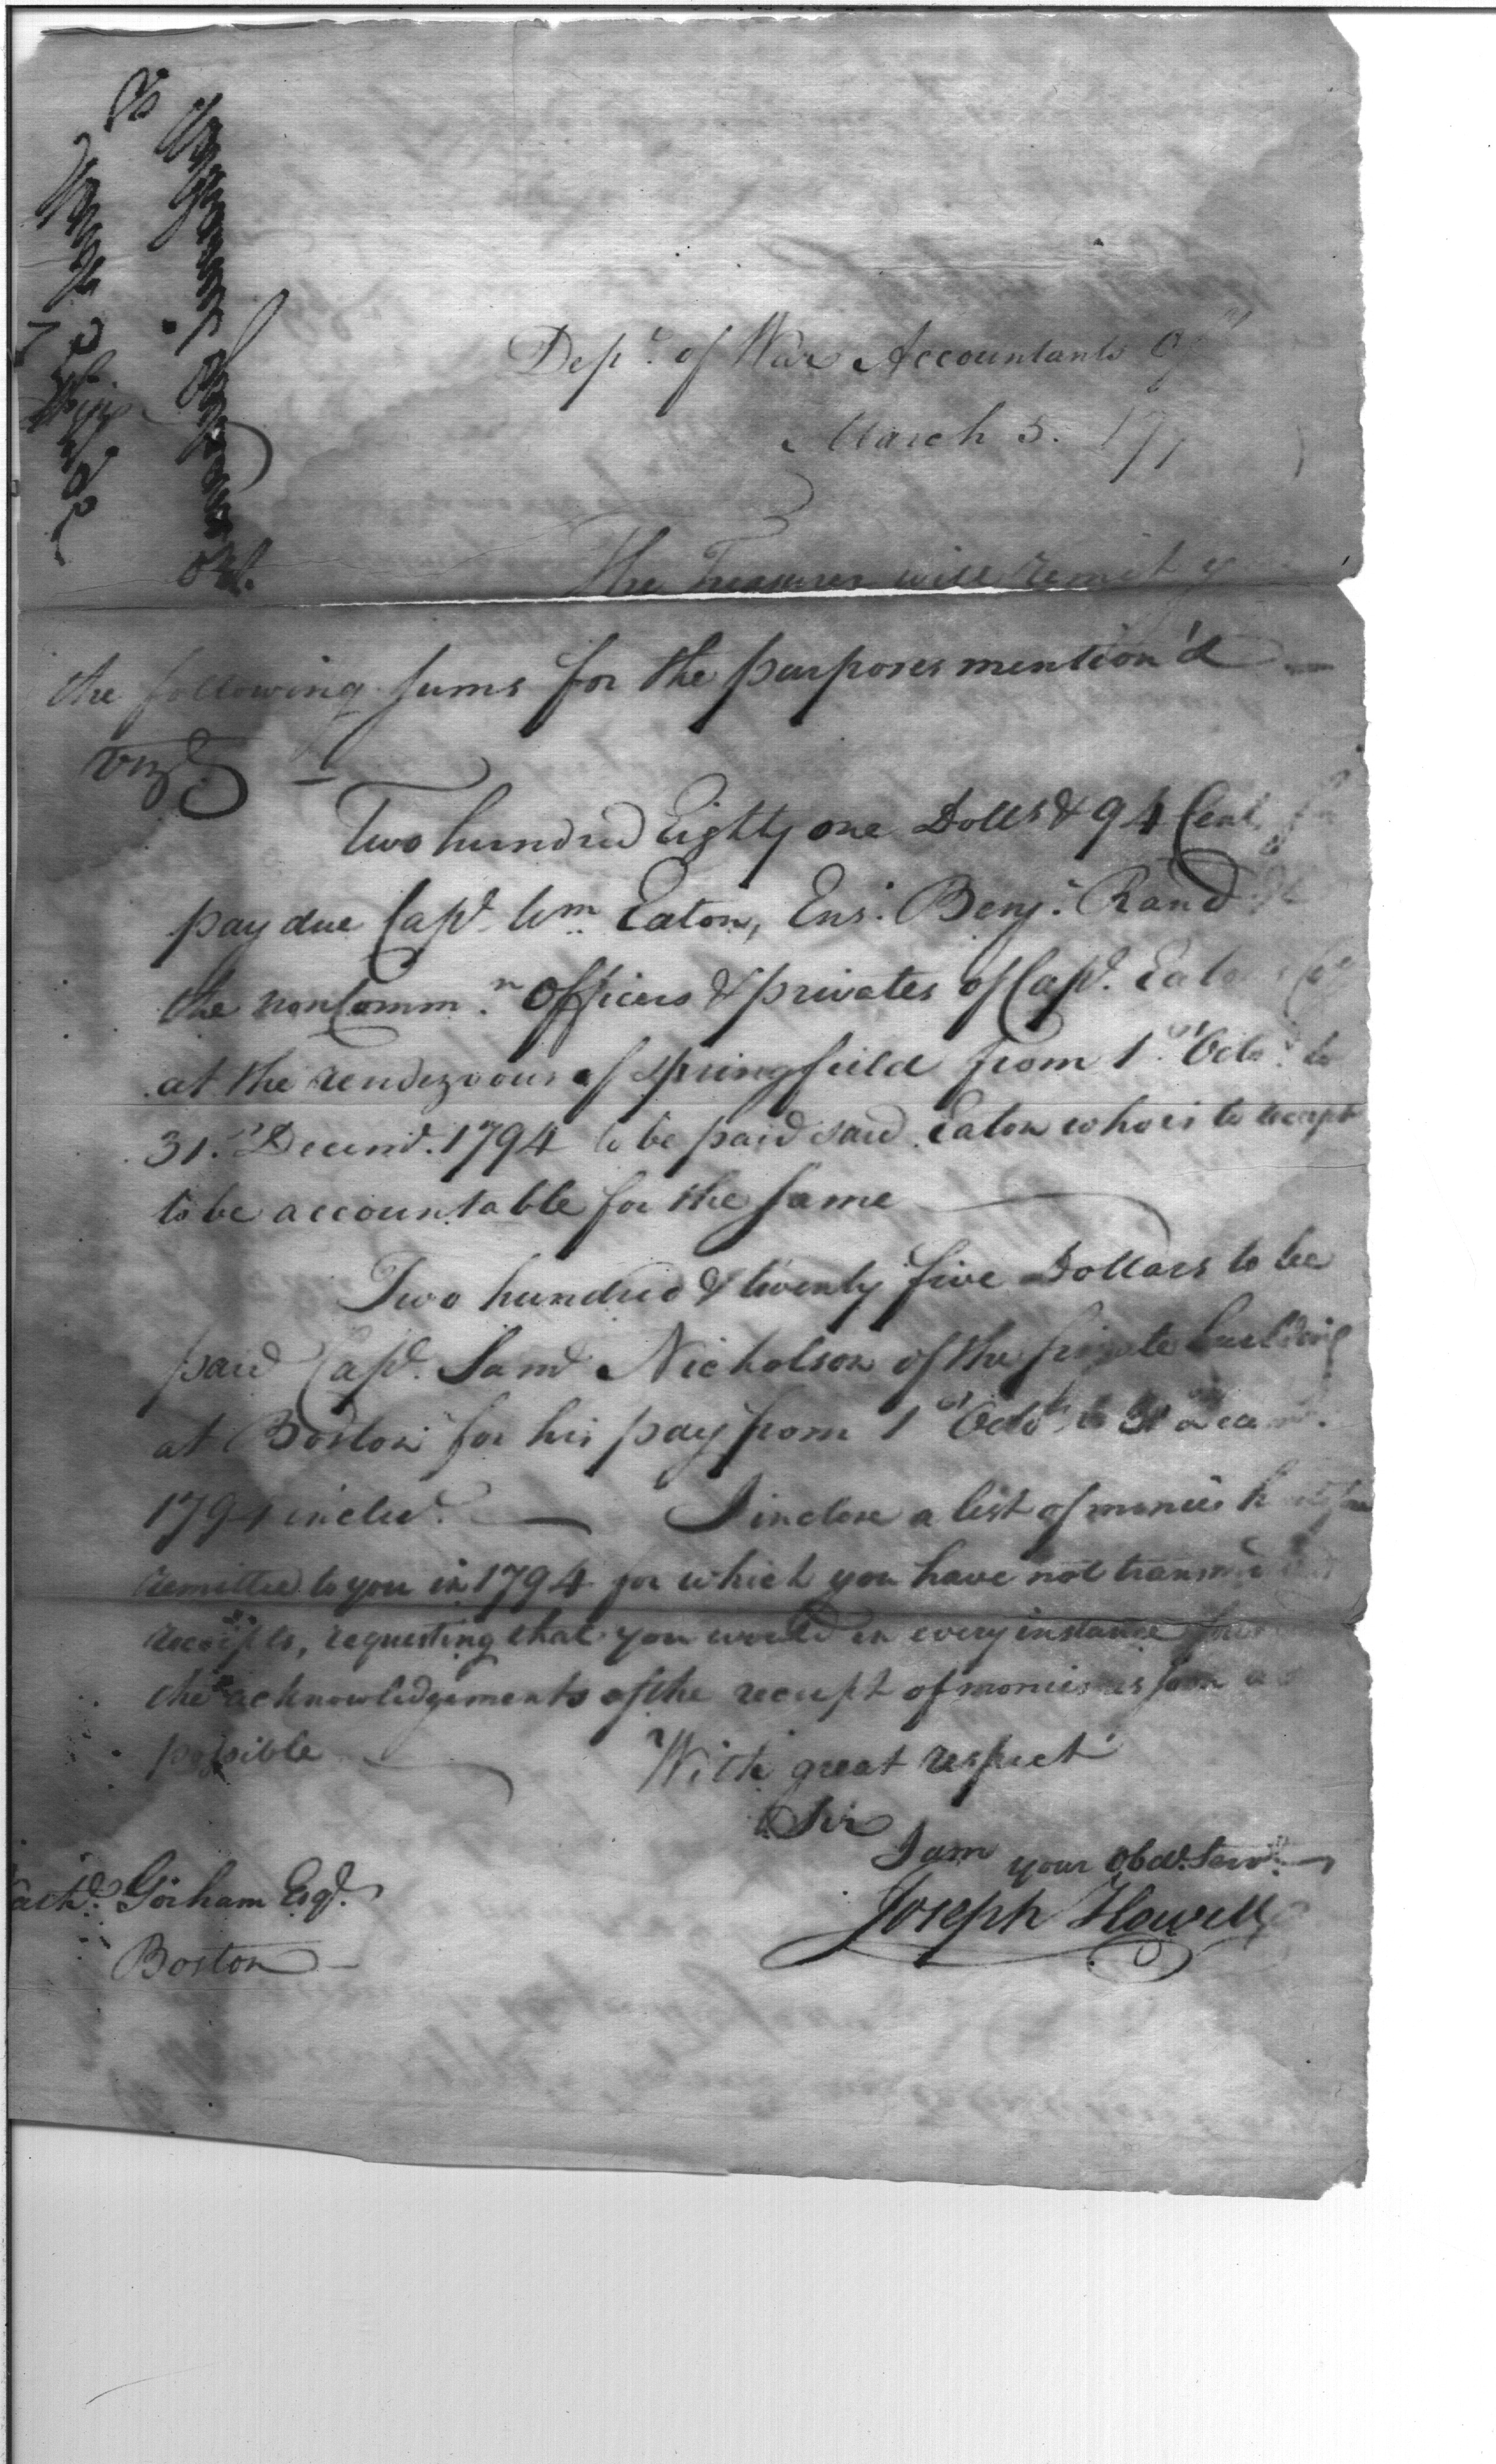 Dep.t of War Accountants
March 5. 17
The Treasurer will remit
the following sums for the purposes mention'd
viz.
Two hundred Eighty one Dolls & 94 Cents
pay due Cap.t Wm. Eaton, Ens.n Benj.n Rand &
the non Comm.n Officers & privates of Cap.t
at the rendezvous of Springfield from 1.st Octo.r to
31.st Decem.r 1794 to be paid said Eaton who is to receipt
to be accountable for the same
Two hundred & twenty five Dollars to be
paid Cap.t Sam.l Nicholson of the frigate building
at Boston for his pay from 1st Octo.r to 31
1794 inclus.
I inclose a list of monies
remitted to you in 1794 for which you have not
receipts, requesting that you would in every instance
the acknowledgements of the receipt of monies as soon as
possible
With great respect
Sir
I am your Obed.t Serv.t
Joseph Howell
Gorham Esq.r
Boston